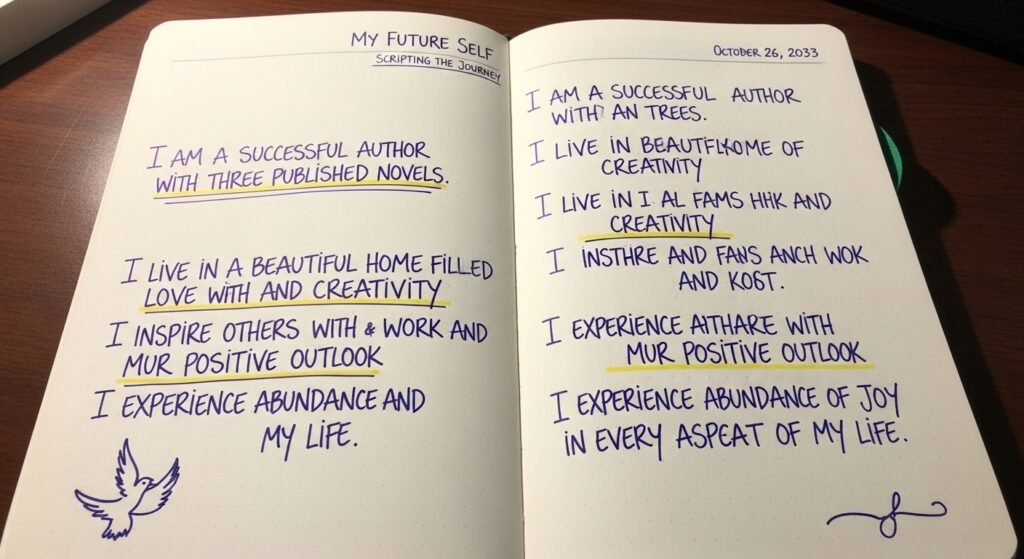 MY FUTURE SELF
SCRIPTING THE JOURNEY
I AM A SUCCESSFUL AUTHOR
WITH THREE PUBLISHED NOVELS.
I LIVE IN A BEAUTIFUL HOME FILLED
LOVE WITH AND CREATIVITY
I INSPIRE OTHERS WITH & WORK AND
MUR POSITIVE OUTLOOK
I EXPERIENCE ABUNDANCE AND
MY LIFE.
OCTOBER 26, 2033
I AM A SUCCESSFUL AUTHOR
WITH AN TREES.
I LIVE IN OF
CREATIVITY
I LIVE IN I AL FAMS HHK AND
CREATIVITY
I INSTHRE AND FANS ANCH WOK
AND KOST.
I EXPERIENCE AITHARE WITH
MUR POSITIVE OUTLOOK
I EXPERIENCE ABUNDANCE OF JOY
IN EVERY ASPEAT OF MY LIFE.